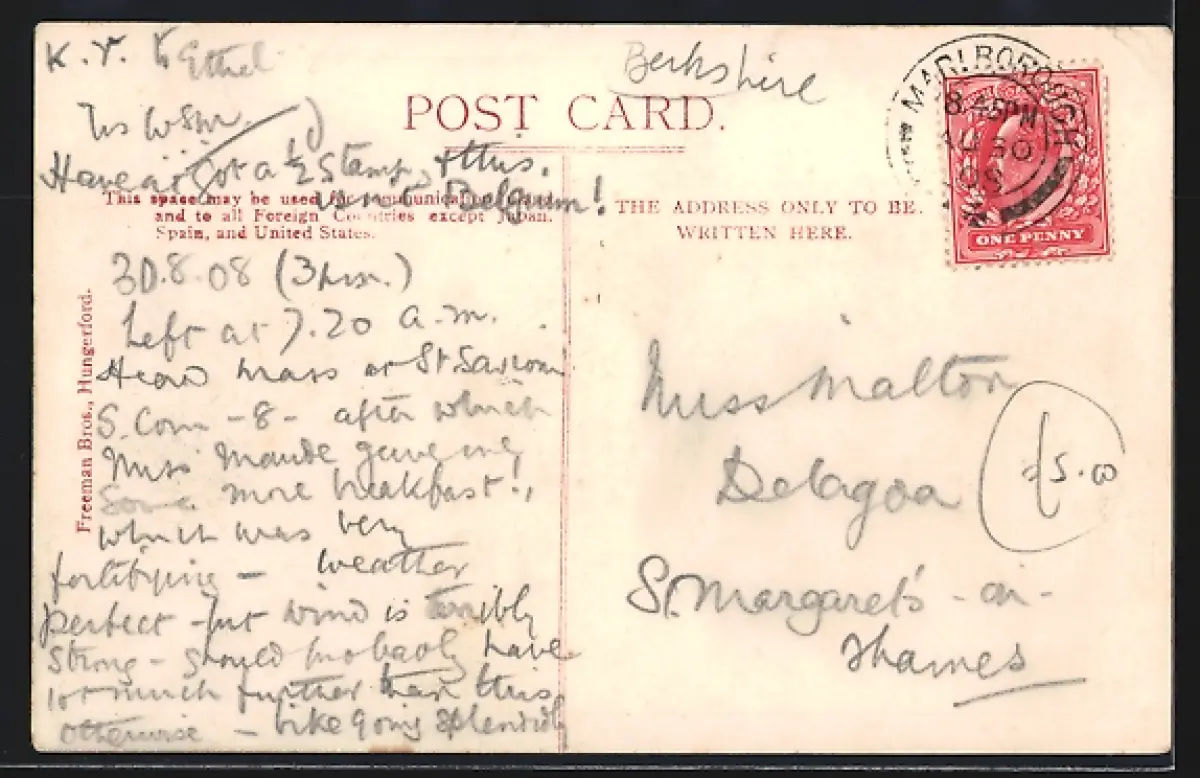 K. V. to Ethel
Berkshire
MARLBOROUGH
8.45PM
AU 30
08
POST CARD.
Haven't got a ½ stamp, & this
isn't Belgium!
This space may be used for communication Inland
and to all Foreign Countries except Japan.
Spain, and United States.
THE ADDRESS ONLY TO BE
WRITTEN HERE.
ONE PENNY
Freeman Bros., Hungerford.
30.8.08 (3 p.m.)
Left at 7.20 a.m.
Heard mass at St. Saviour
S. Com -8- after which
Miss Maude gave me
some more breakfast!,
which was very
fortifying - weather
perfect - but wind is terribly
strong - should probably have
got much further than this
otherwise - bike going splendidly
Miss Malton
Delagoa
St. Margaret's - on -
Thames
£5.00